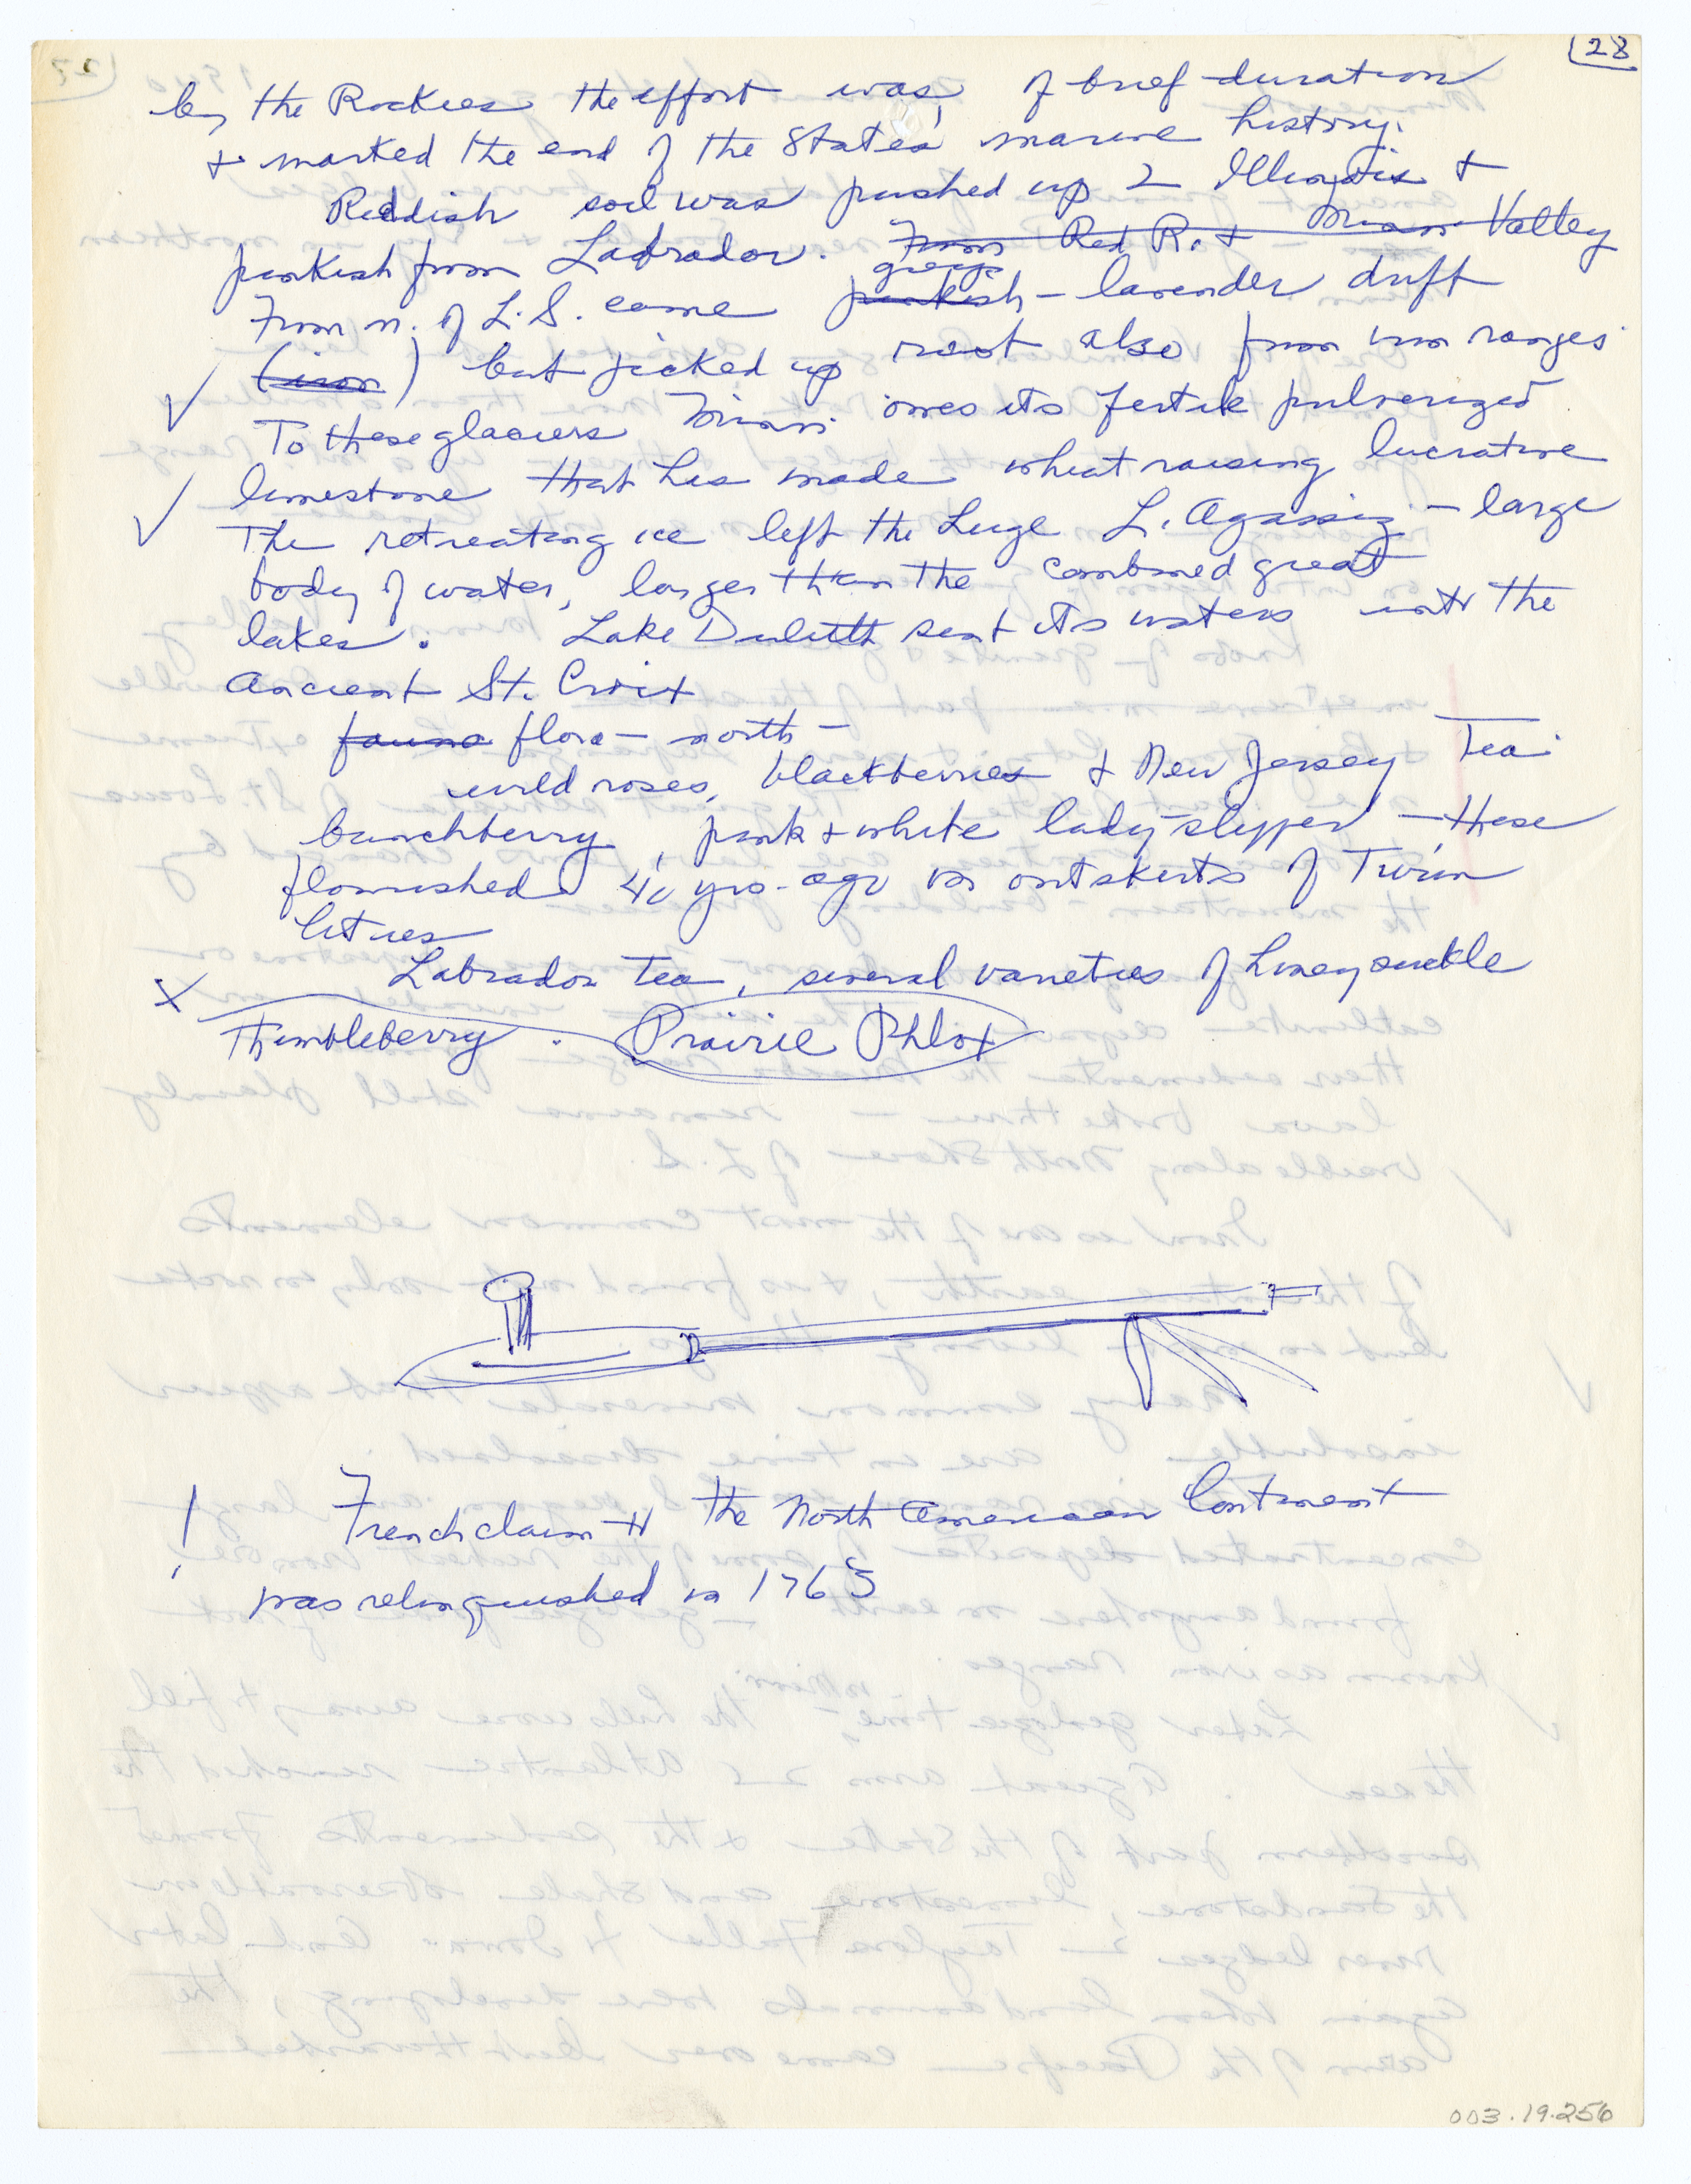 28
by the Rockies the effort was, of brief duration
& marked the end of the State's marine history.
Reddish soil was pushed up 2 Illinois &
pinkish from Labrador. From Red R. & Minn Valley
greys
From n. of L.S. came pinkish - lavender drift
(iron) but picked up rust also from iron ranges
To these glaciers Minn. owes its fertile pulverized
limestone that has made wheat raising lucrative
The retreating ice left the huge L. Agassiz - large
body of water, larger than the combined great
lakes. Lake Duluth sent its waters into the
Ancient St. Croix
fauna flora - north -
wild roses, blackberries & New Jersey Tea
bunchberry, pink & white lady-slipper - these
flourished 40 yrs. ago on outskirts of Twin
Cities
x Labrador tea, several varieties of honeysuckle
Thimbleberry. Prairie Phlox
! French claim to the North American Continent
was relinquished in 1763
003.19.256